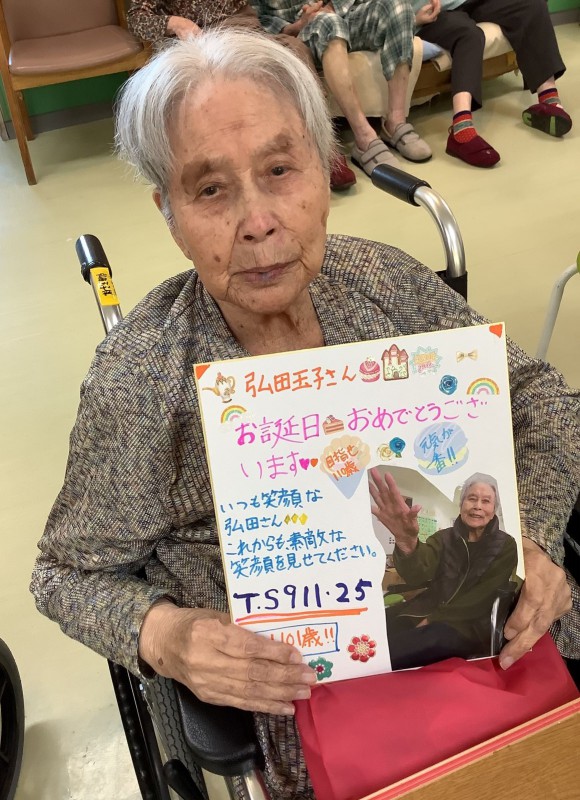 弘田玉子さん
お誕生日おめでとうござ
います
目指せ
110歳
元気が
一番!!
いつも笑顔な
弘田さん
これからも素敵な
笑顔を見せてください。
T.S911.25
101歳!!